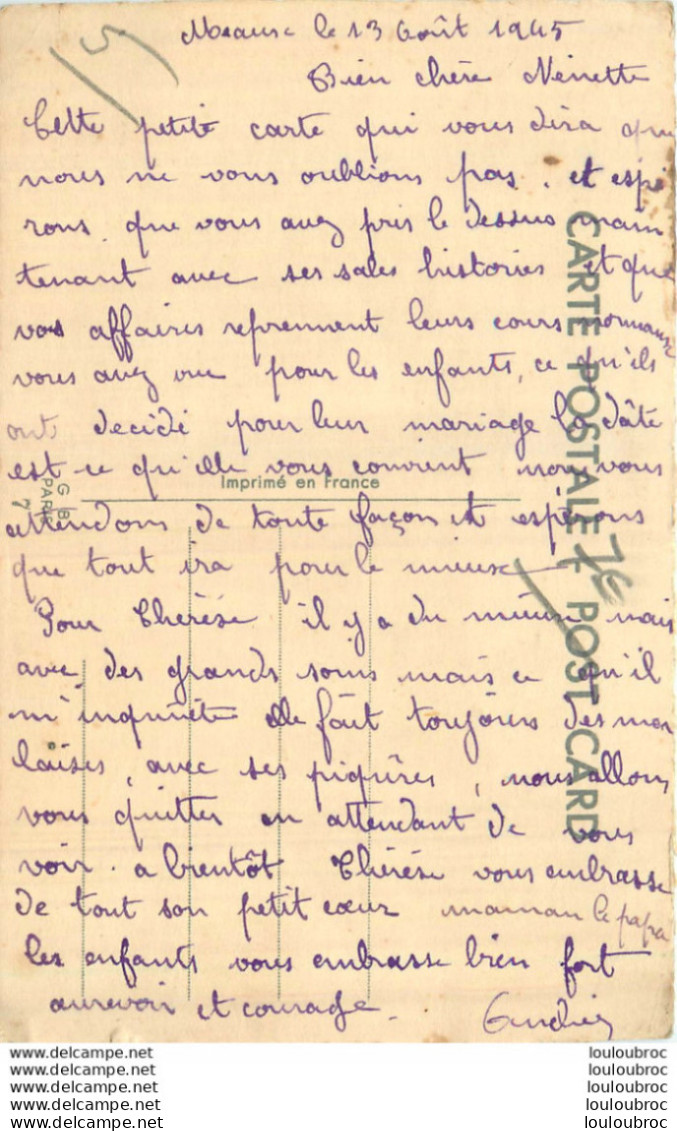 Meaux le 13 Août 1945
Bien chère Nénette
Cette petite carte qui vous dira que
nous ne vous oublions pas. et espé
rons que vous avez pris le dessus main
tenant avec ses sales histoires et que
vos affaires reprennent leurs cours normaux
vous avez vue pour les enfants, ce qu'ils
ont décidé pour leur mariage la dâte
est ce qu'elle vous convient nous vous
attendons de toute façon et espérons
que tout ira pour le mieux
Pour Thérèse il y a du mieux mais
avec des grands soins mais ce qu'il
m'inquiète elle fait toujours des ma
laises, avec ses piqûres, nous allons
vous quitter en attendant de vous
voir. a bientôt Thérèse vous embrasse
de tout son petit cœur maman le papa
les enfants vous embrasse bien fort
aurevoir et courage.
CARTE POSTALE - POST CARD
Imprimé en France
G B
PARIS
7
5
www.delcampe.net
www.delcampe.net
www.delcampe.net
www.delcampe.net
www.delcampe.net
louloubroc
louloubroc
louloubroc
louloubroc
louloubroc